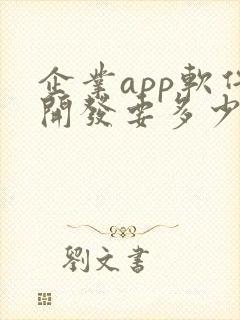 企業app軟件
開發要多少
劉文書